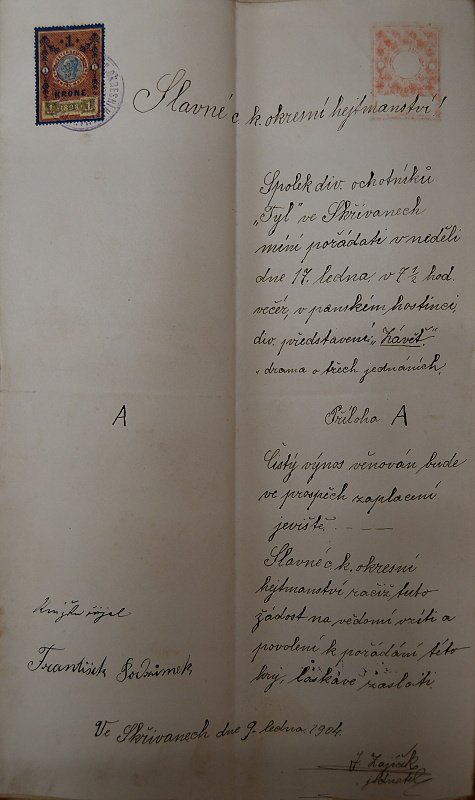 1
KRONE
1 1898 1
Slavné c. k. okresní hejtmanství!
Spolek div. ochotníků
„Tyl“ ve Skřivanech
míní pořádati v neděli
dne 17. ledna, v 7½ hod.
večer, v panském hostinci,
div. představení: „Závěť.“
drama o třech jednáních.
A
Příloha A
Čistý výnos věnován bude
ve prospěch zaplacení
jeviště.
Slavné c. k. okresní
hejtmanství račiž tuto
žádost na vědomí vzíti a
povolení k pořádání této
hry, laskavě zaslati.
František Podzimek
Ve Skřivanech dne 9. ledna 1904.
J. Zajíček
jednatel